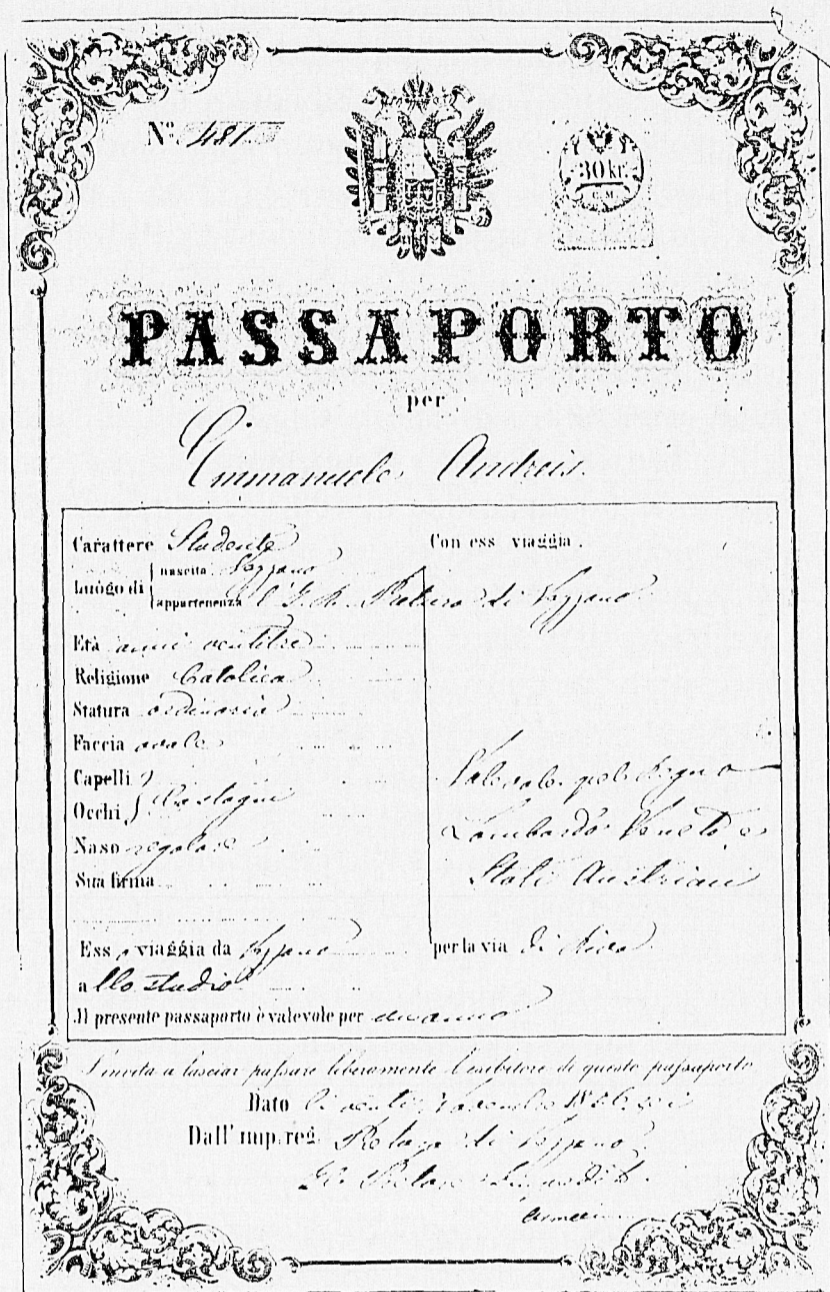 Nº 481
30 kr.
C. M.
PASSAPORTO
per
Emmanuele Andreis.
Carattere Studente
Con ess viaggia
Luogo di nascita Vezzano
appartenenza l'I. R. Pretura di Vezzano
Età anni ventitre
Religione Catolica
Statura ordinaria
Faccia ovale
Capelli
Occhi } Castagni
Naso regolare
Sua firma
Valevole pel Regno
Lombardo Veneto e
Stati Austriaci
Ess o viaggia da Vezzano per la via di Riva
allo studio
Il presente passaporto è valevole per un anno
S'invita a lasciar passare liberamente l'esibitore di questo passaporto
Dato li venti Novembre
Dall' imp. reg. Pretura di Vezzano
Pretore